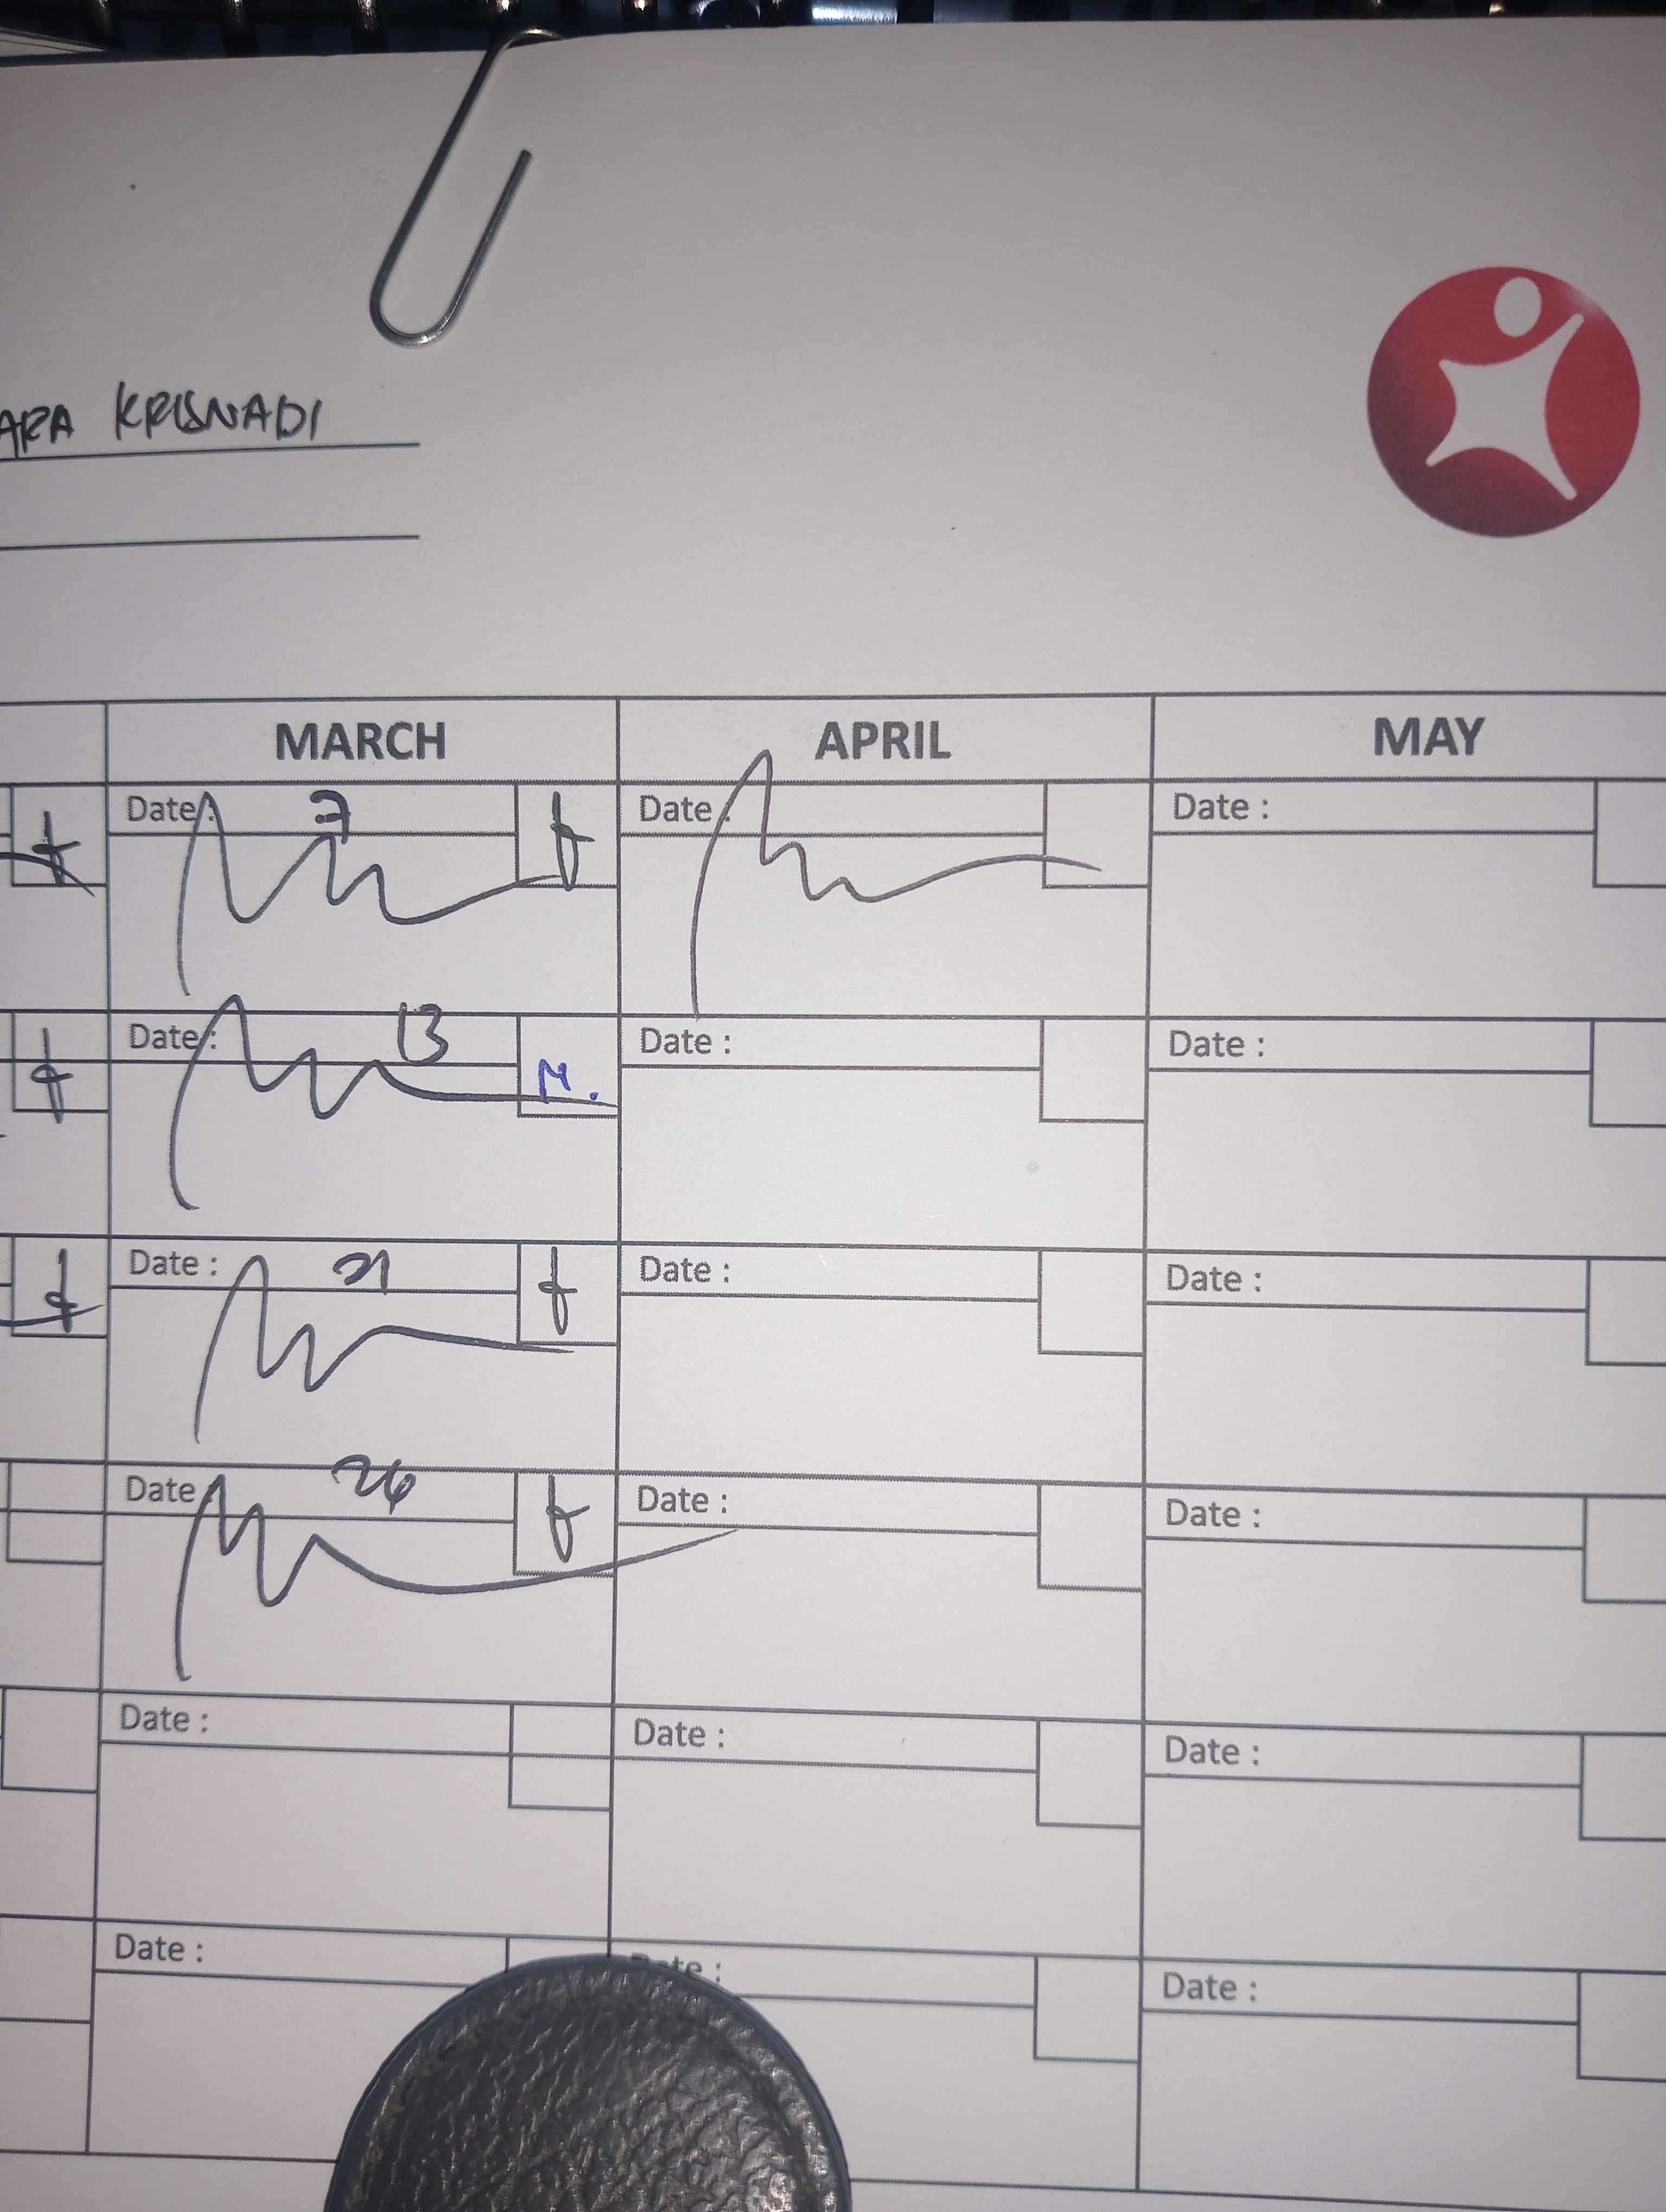 ARA KRISNADI
MARCH APRIL MAY
Date: 7 Date: Date :
Date: 13 M. Date : Date :
Date : 21 Date : Date :
Date 26 Date : Date :
Date : Date : Date :
Date : Date : Date :